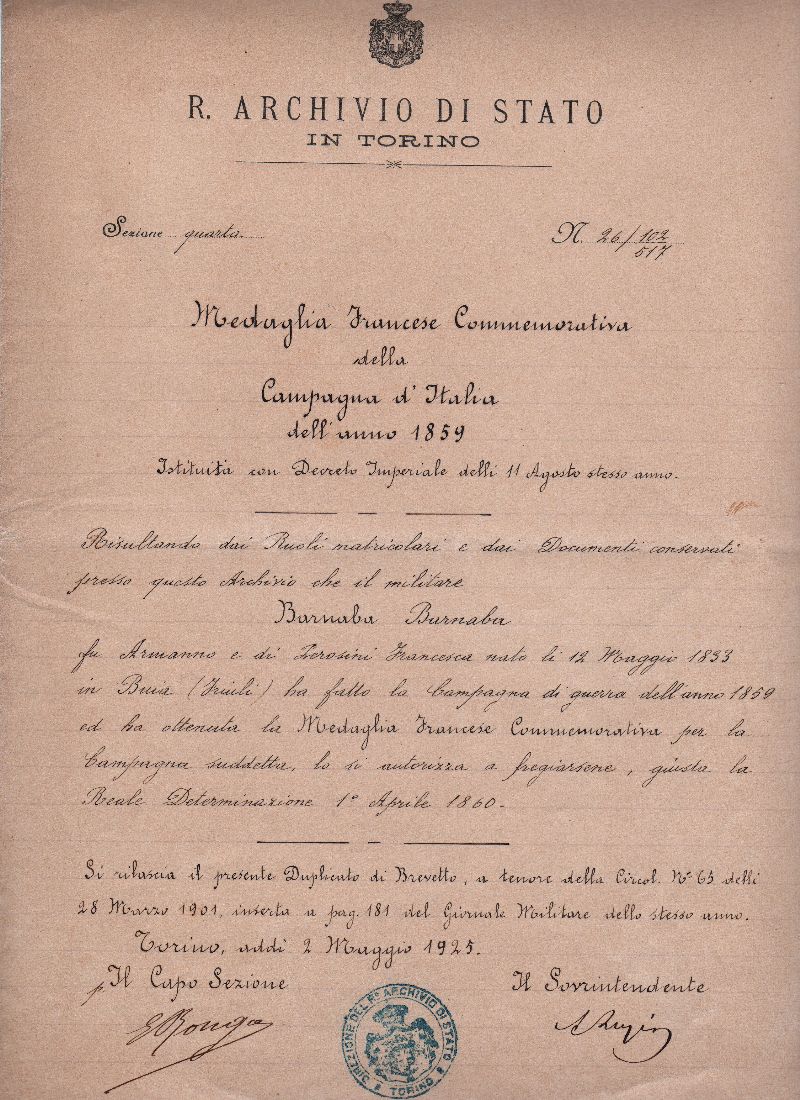 R. ARCHIVIO DI STATO
IN TORINO
Sezione quarta.
N. 26/102/517
Medaglia Francese Commemorativa
della
Campagna d'Italia
dell'anno 1859
Istituita con Decreto Imperiale delli 11 Agosto stesso anno.
Risultando dai Ruoli matricolari e dai Documenti conservati
presso questo Archivio che il militare
Barnaba Barnaba
fu Armanno e di Zerosini Francesca nato li 12 Maggio 1833
in Buia (Friuli) ha fatto la Campagna di guerra dell'anno 1859
ed ha ottenuta la Medaglia Francese Commemorativa per la
Campagna suddetta, lo si autorizza a fregiarsene, giusta la
Reale Determinazione 1° Aprile 1860.
Si rilascia il presente Duplicato di Brevetto, a tenore della Circol. N° 65 delli
28 Marzo 1901, inserta a pag. 181 del Giornale Militare dello stesso anno.
Torino, addì 2 Maggio 1925.
p. Il Capo Sezione
Il Sovrintendente
DIREZIONE DEL R° ARCHIVIO DI STATO
TORINO